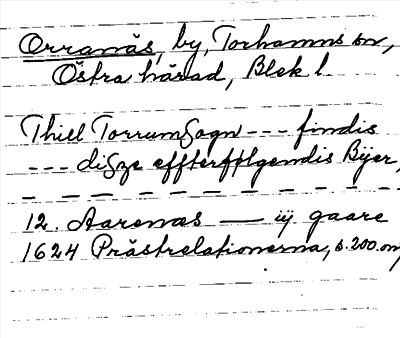 Orranäs, by, Torhamns sn,
Östra härad, Blek l.
Thill Torrumßogn --- findis
--- dißze effterfølgendis Bÿer,
- - - - - - - - - - -
12. Aarenæs — iij gaare
1624 Prästrelationerna, s. 200. oný